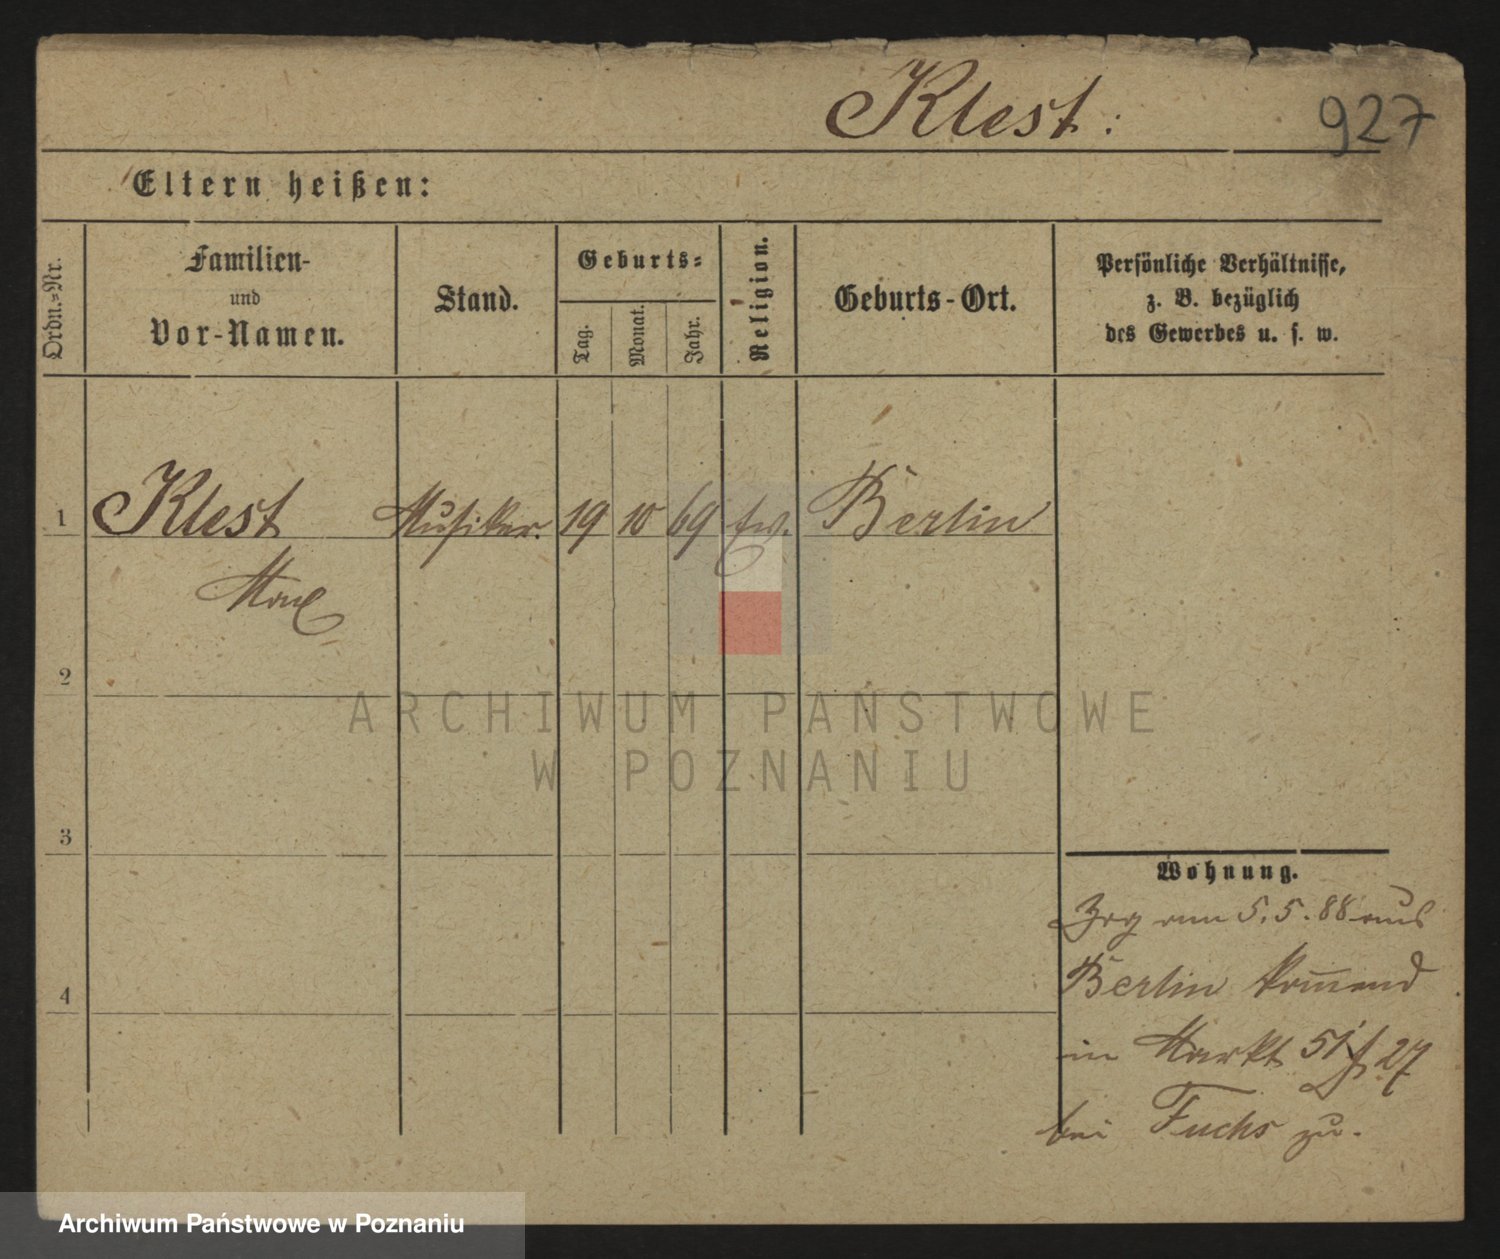 Klest:
927
Eltern heißen:
Ordn.=Nr.
Familien-
und
Vor-Namen.
Stand.
Geburts=
Tag.
Monat.
Jahr.
Religion.
Geburts-Ort.
Persönliche Verhältnisse,
z. B. bezüglich
des Gewerbes u. s. w.
1 Klest Musiker. 19 10 69 ev. Berlin
Max
2
3
4
Wohnung.
Zog am 5.5.88 aus
Berlin kom̅end
in Markt 51 27
bei Fuchs zu.
ARCHIWUM PAŃSTWOWE
W POZNANIU
Archiwum Państwowe w Poznaniu